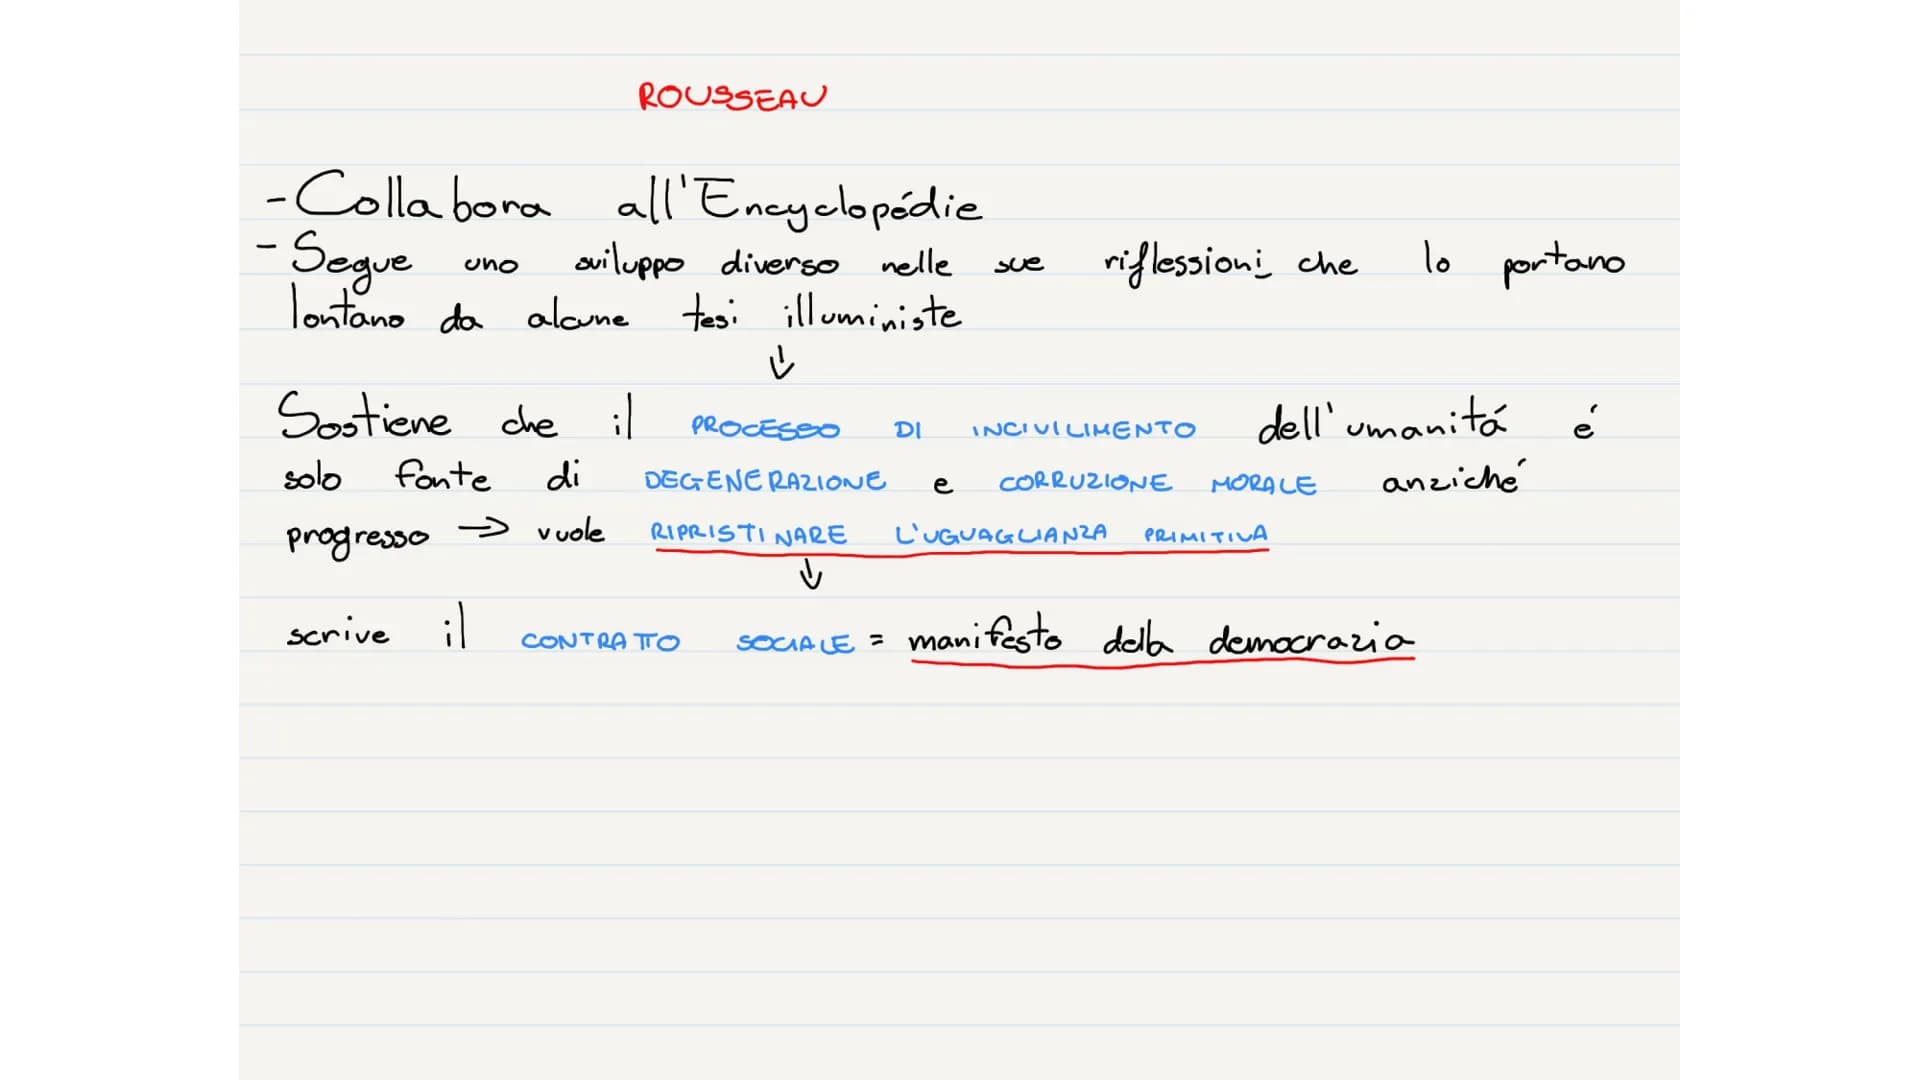 ROUSSEAU
- Collabora all'Encyclopédie
- Segue uno sviluppo diverso nelle sue riflessioni che lo portano
lontano da alcune tesi illuministe
↓
Sostiene che il PROCESSO DI INCIVILIMENTO dell'umanitá é
solo fonte di DEGENERAZIONE e CORRUZIONE MORALE anziché
progresso → vuole RIPRISTINARE L'UGUAGLIANZA PRIMITIVA
↓
scrive il CONTRATTO SOCIALE = manifesto della democrazia